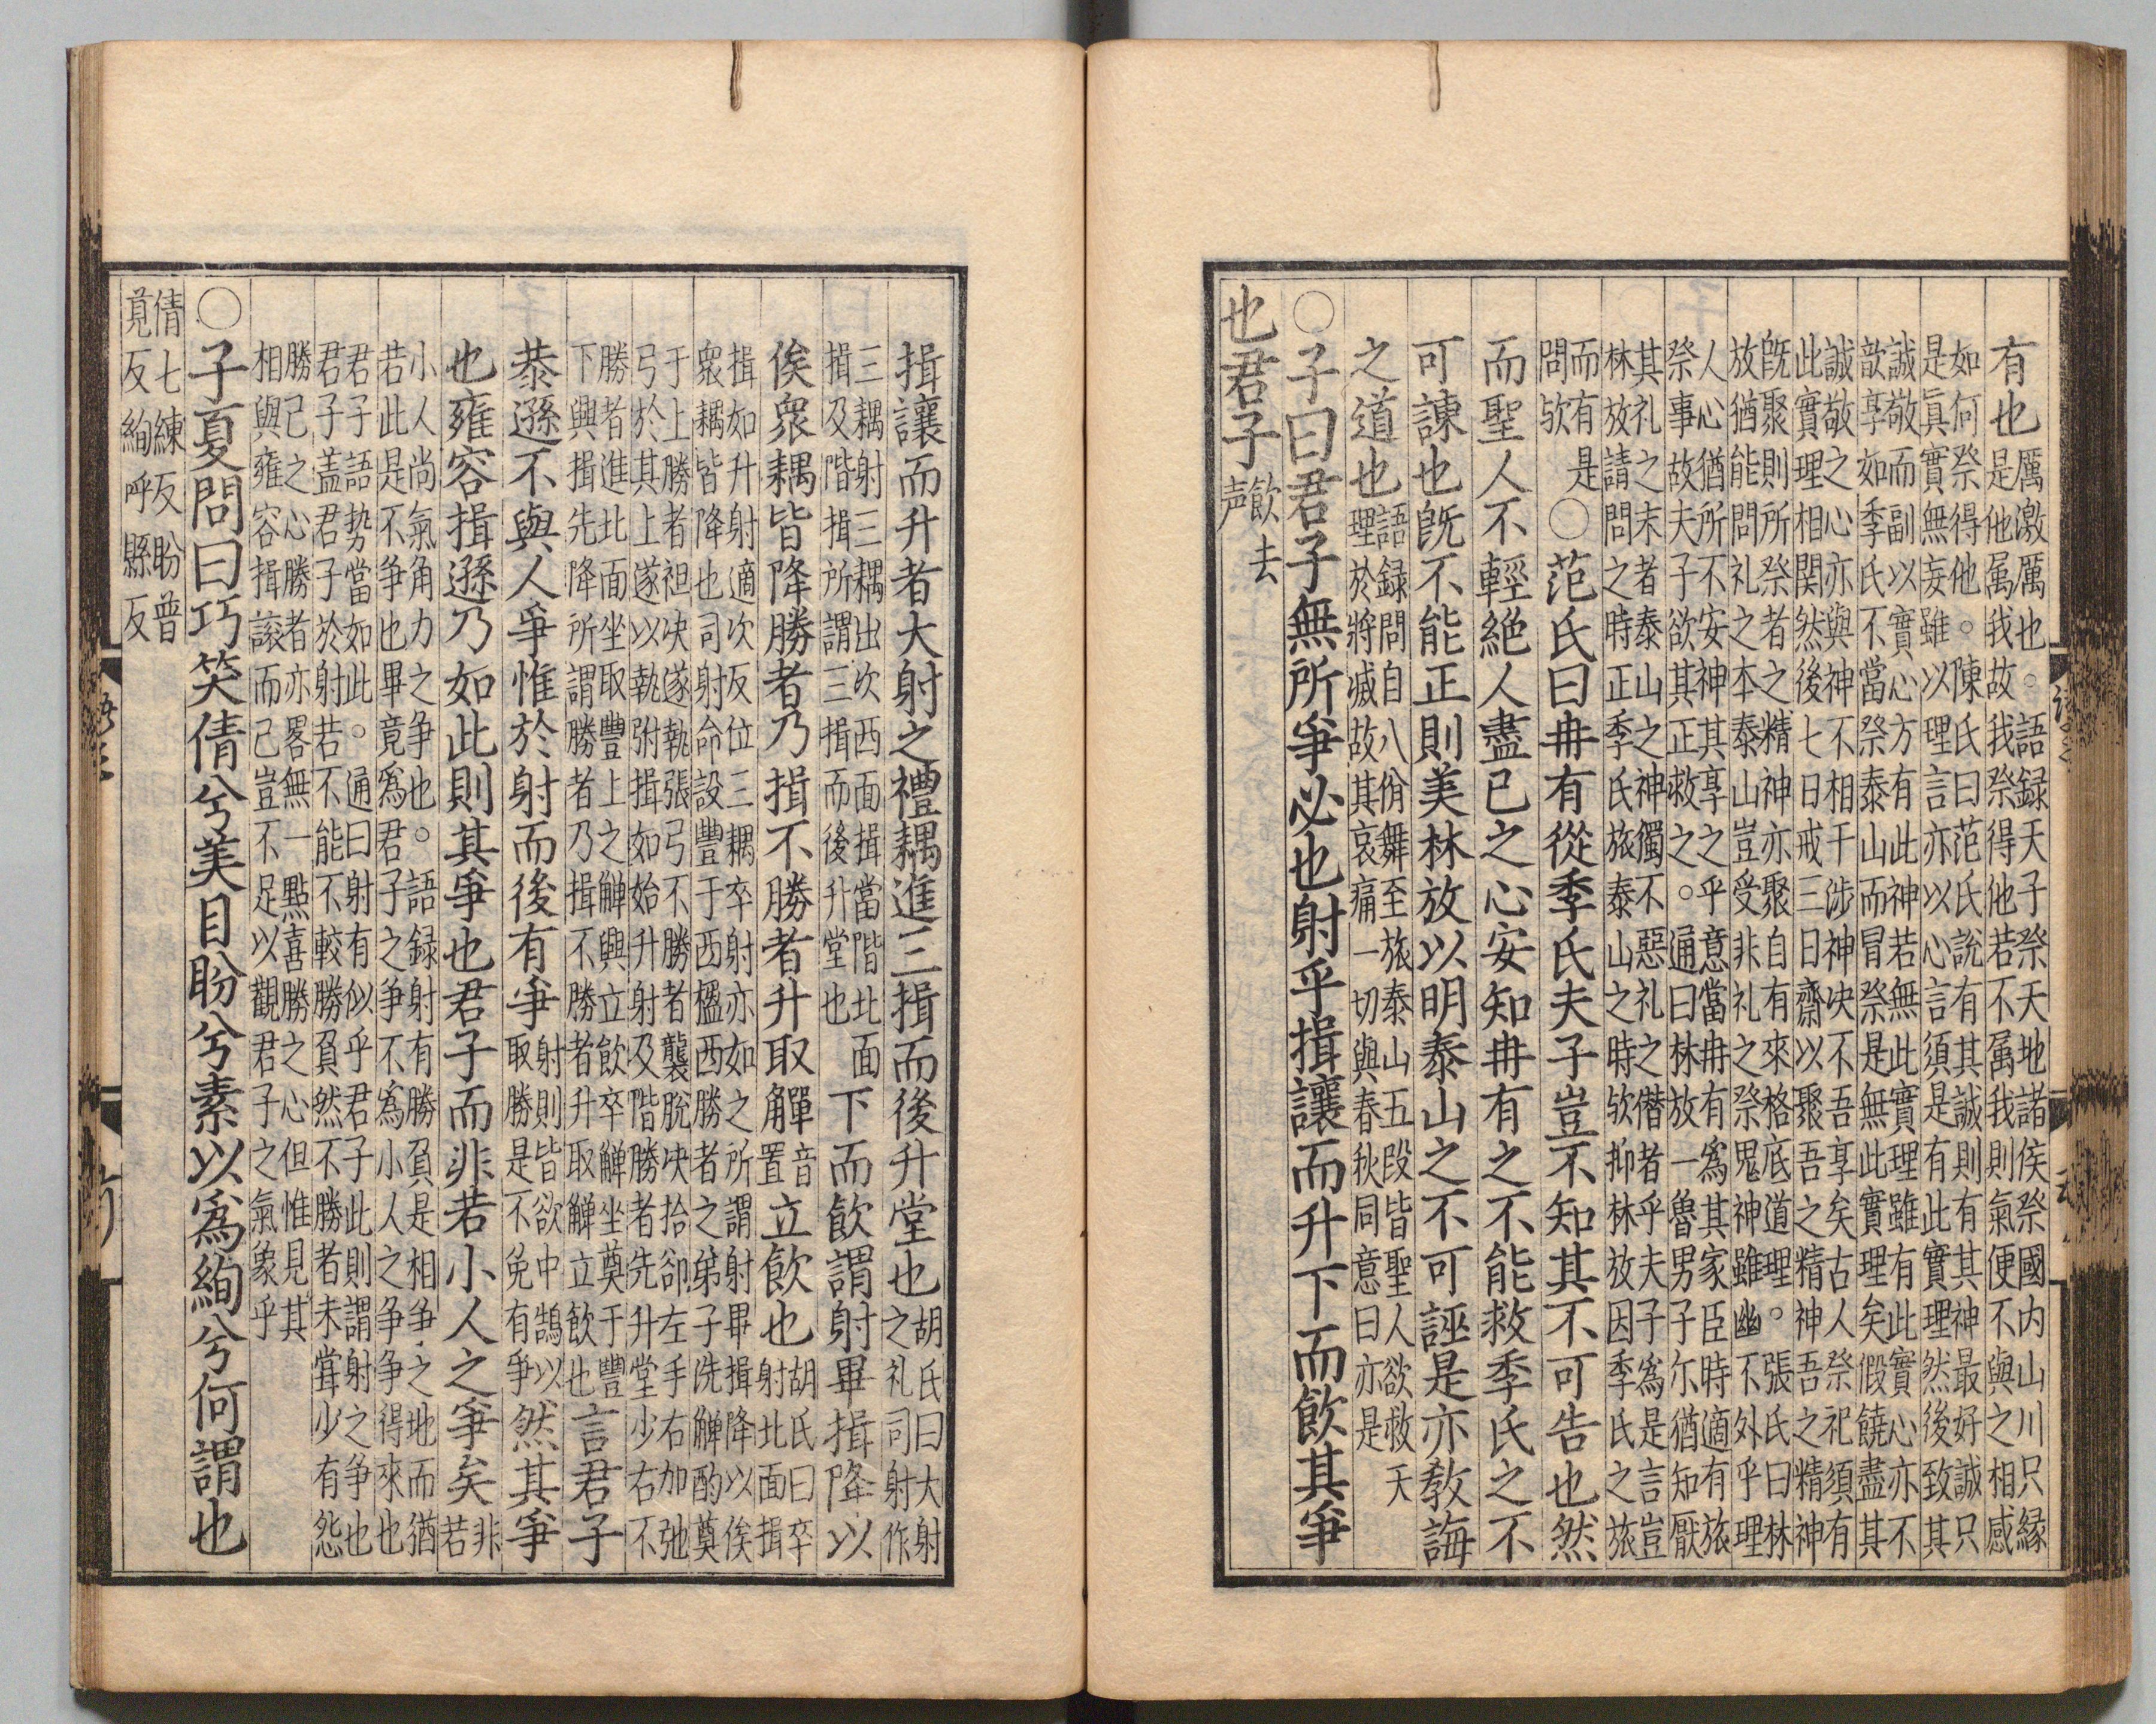 有也
厲激厲也。語録天子祭天地諸侯祭國内山川只縁
是他属我故我祭得他若不属我則氣便不與之相感
如何祭得他。陳氏曰范氏說有其誠則有其神最好誠只
是眞實無妄雖以理言亦以心言須是有此實理然後致其
誠敬而副以實心方有此神若無此實理雖有此實心亦不
歆享如季氏不當祭泰山而冒祭是無此實理矣假饒盡其
誠敬之心亦與神不相干涉神决不吾享矣古人祭祀須有
此實理相関然後七日戒三日齋以聚吾之精神吾之精神
旣聚則所祭者之精神亦聚自有來格底道理。張氏曰林
放猶能問礼之本泰山豈受非礼之祭鬼神雖幽不外乎理
人心猶所不安神其享之乎意當冉有爲其家臣時適有旅
祭事故夫子欲其正救之。通曰林放一魯男子尓猶知厭
其礼之末者泰山之神獨不惡礼之僣者乎夫子爲是言豈
林放請問之時正季氏旅泰山之時欤抑林放因季氏之旅
而有是
問欤
○范氏曰冉有從季氏夫子豈不知其不可告也然
而聖人不輕絶人盡已之心安知冉有之不能救季氏之不
可諫也旣不能正則美林放以明泰山之不可誣是亦敎誨
之道也
語録問自八佾舞至旅泰山五段皆聖人欲救天
理於將滅故其哀痛一切與春秋同意曰亦是
○子曰君子無所爭必也射乎揖讓而升下而飲其爭
也君子
飲去
声
揖讓而升者大射之禮耦進三揖而後升堂也
胡氏曰大射
之礼司射作
三耦射三耦出次西面揖當階北面
揖及階揖所謂三揖而後升堂也
下而飲謂射畢揖降以
俟衆耦皆降勝者乃揖不勝者升取觶
音
置
立飲也
胡氏曰卒
射北面揖
揖如升射適次反位三耦卒射亦如之所謂射畢揖降以俟
衆耦皆降也司射命設豐于西楹西勝者之弟子洗觶酌奠
于上勝者袒决遂執張弓不勝者襲脫决拾卻左手右加弛
弓於其上遂以執弣揖如始升射及階勝者先升堂少右不
勝者進北面坐取豐上之觶興立飲卒觶坐奠于豐
下興揖先降所謂勝者乃揖不勝者升取觶立飲也
言君子
恭遜不與人爭惟於射而後有爭
射則皆欲中鵠以
取勝是不免有爭
然其爭
也雍容揖遜乃如此則其爭也君子而非若小人之爭矣
非
若
小人尚氣角力之争也。語録射有勝負是相争之地而猶
若此是不争也畢竟爲君子之争不爲小人之争争得來也
君子語势當如此。通曰射有似乎君子此則謂射之争也
君子盖君子於射若不能不較勝負然不勝者未甞少有怨
勝己之心勝者亦畧無一點喜勝之心但惟見其
相與雍容揖遜而已豈不足以觀君子之氣象乎
○子夏問曰巧笑倩兮美目盼兮素以爲絢兮何謂也
倩七練反盼普
莧反絢呼縣反